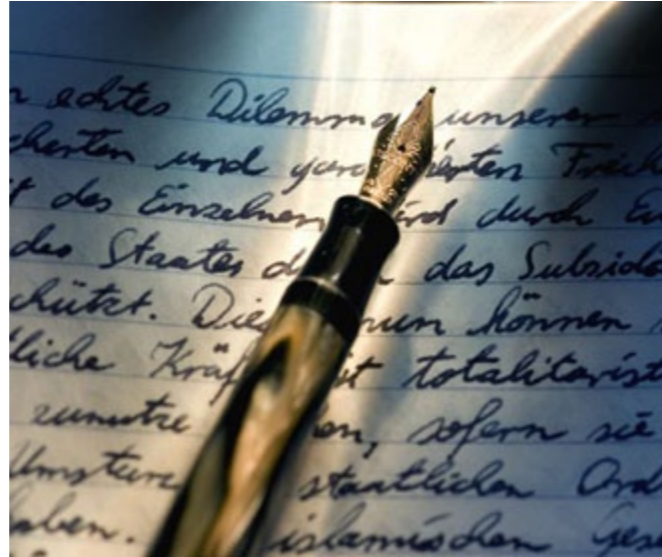 n echtes Dilemma unserer
cherten und gara ierten Freih
t des Einzelnen wird durch Ei
des Staates d das Subsidi
chützt. Dies nun können
tliche Kräf it totalitarist
zunutze en, sofern sie
Umsturz staatlichen Ord
aben. islamischen Gese